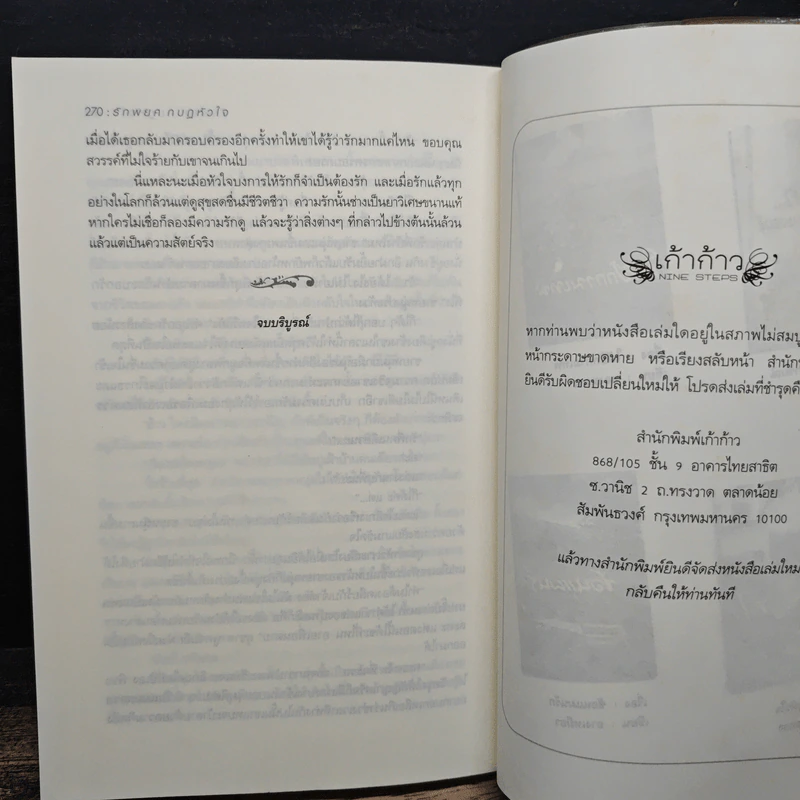 270 : รักพยศ กบฏหัวใจ
เมื่อได้เธอกลับมาครอบครองอีกครั้งทำให้เขาได้รู้ว่ารักมากแค่ไหน ขอบคุณ
สวรรค์ที่ไม่ใจร้ายกับเขาจนเกินไป
นี่แหละนะเมื่อหัวใจบงการให้รักก็จำเป็นต้องรัก และเมื่อรักแล้วทุก
อย่างในโลกก็ล้วนแต่ดูสุขสดชื่นมีชีวิตชีวา ความรักนั้นช่างเป็นยาวิเศษขนานแท้
หากใครไม่เชื่อก็ลองมีความรักดู แล้วจะรู้ว่าสิ่งต่างๆ ที่กล่าวไปข้างต้นนั้นล้วน
แล้วแต่เป็นความสัตย์จริง
จบบริบูรณ์
เก้าก้าว
NINE STEPS
หากท่านพบว่าหนังสือเล่มใดอยู่ในสภาพไม่สมบู
หน้ากระดาษขาดหาย หรือเรียงสลับหน้า สำนัก
ยินดีรับผิดชอบเปลี่ยนใหม่ให้ โปรดส่งเล่มที่ชำรุดคื
สำนักพิมพ์เก้าก้าว
868/105 ชั้น 9 อาคารไทยสาธิต
ซ.วานิช 2 ถ.ทรงวาด ตลาดน้อย
สัมพันธวงศ์ กรุงเทพมหานคร 10100
แล้วทางสำนักพิมพ์ยินดีจัดส่งหนังสือเล่มใหม่
กลับคืนให้ท่านทันที